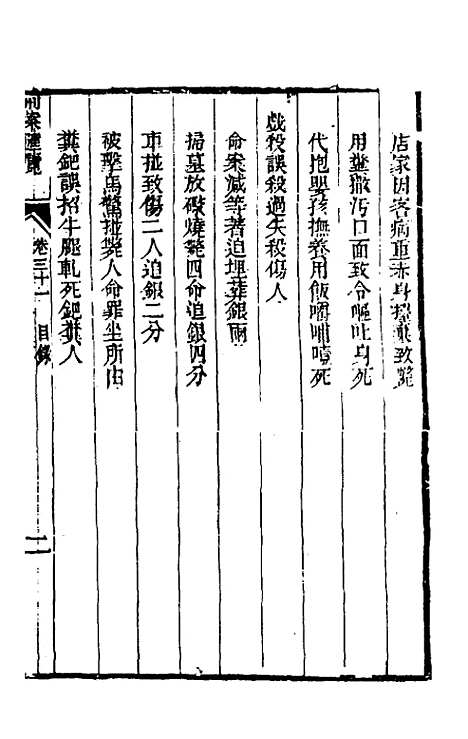 店家因客病重赤身擡棄致斃
用糞撒污口面致令嘔吐身死
代抱嬰孩撫養用飯嚼哺噎死
戲殺誤殺過失殺傷人
命案減等著追埋葬銀兩
掃墓放礮燒斃四命追銀四分
車碰致傷二人追銀二分
被擊馬驚碰斃人命罪坐所由
糞鈀誤招牛腿軋死鈀糞人
刑案匯覽 卷三十一 目錄 二